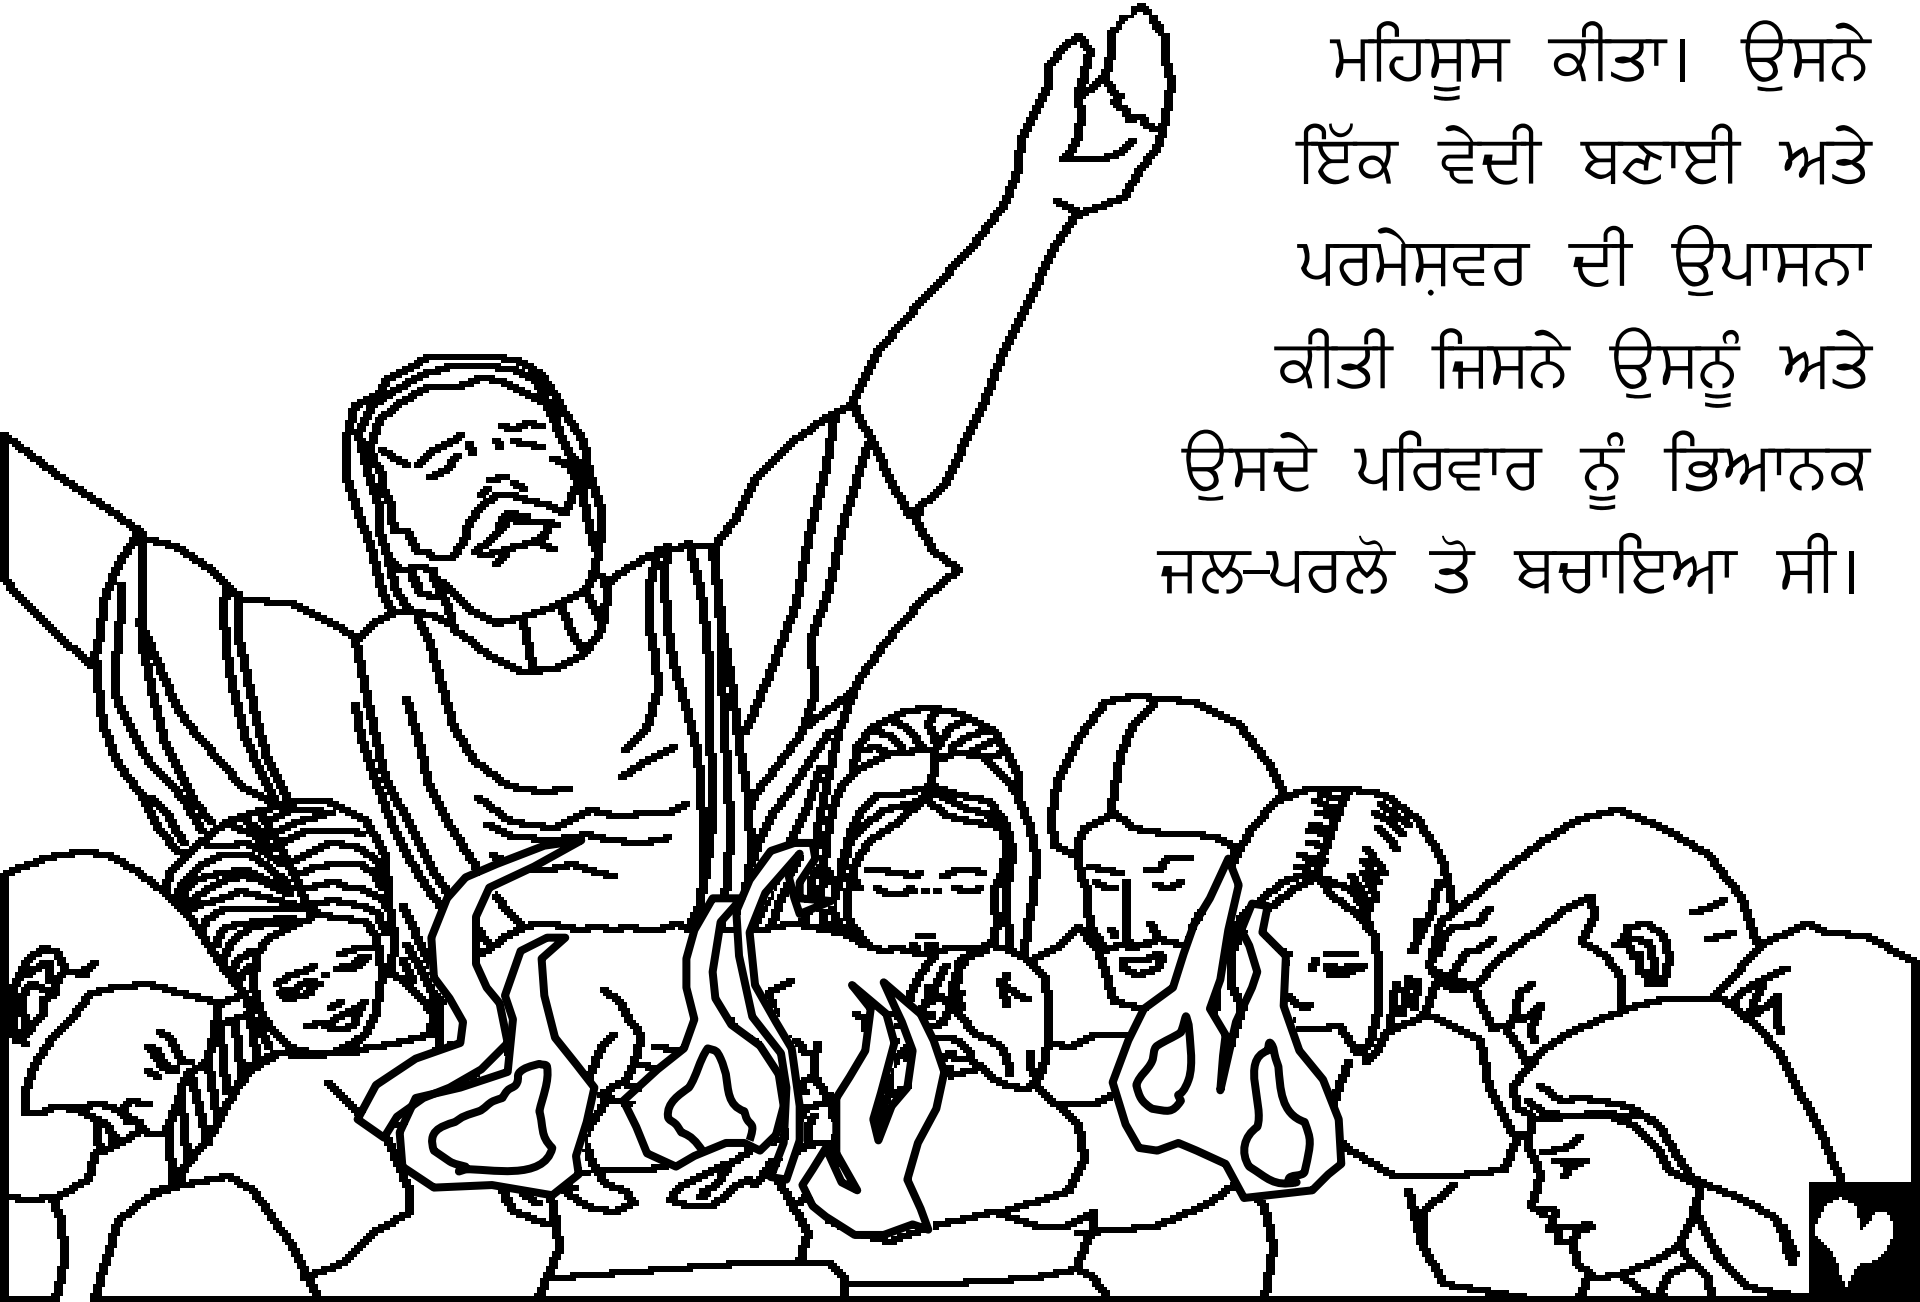 ਮਹਿਸੂਸ ਕੀਤਾ। ਉਸਨੇ
ਇੱਕ ਵੇਦੀ ਬਣਾਈ ਅਤੇ
ਪਰਮੇਸ਼ਵਰ ਦੀ ਉਪਾਸਨਾ
ਕੀਤੀ ਜਿਸਨੇ ਉਸਨੂੰ ਅਤੇ
ਉਸਦੇ ਪਰਿਵਾਰ ਨੂੰ ਭਿਆਨਕ
ਜਲ-ਪਰਲੋ ਤੋ ਬਚਾਇਆ ਸੀ।